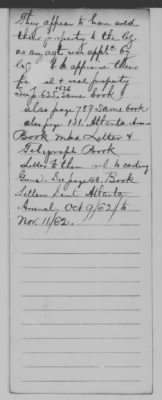 They appear to have sold
their property to the Cg.
as on
to appraise their
& real property
See p 625, Same book &
626
also page 787 Same book
also page 131, Atlanta Arsl
Book mkd Letter &
Telegraph Book
Letter to them rel to casting
Guns. See page 42. Book
Letters sent Atlanta
Arsenal, Oct 9/62/to
Nov. 11/62.